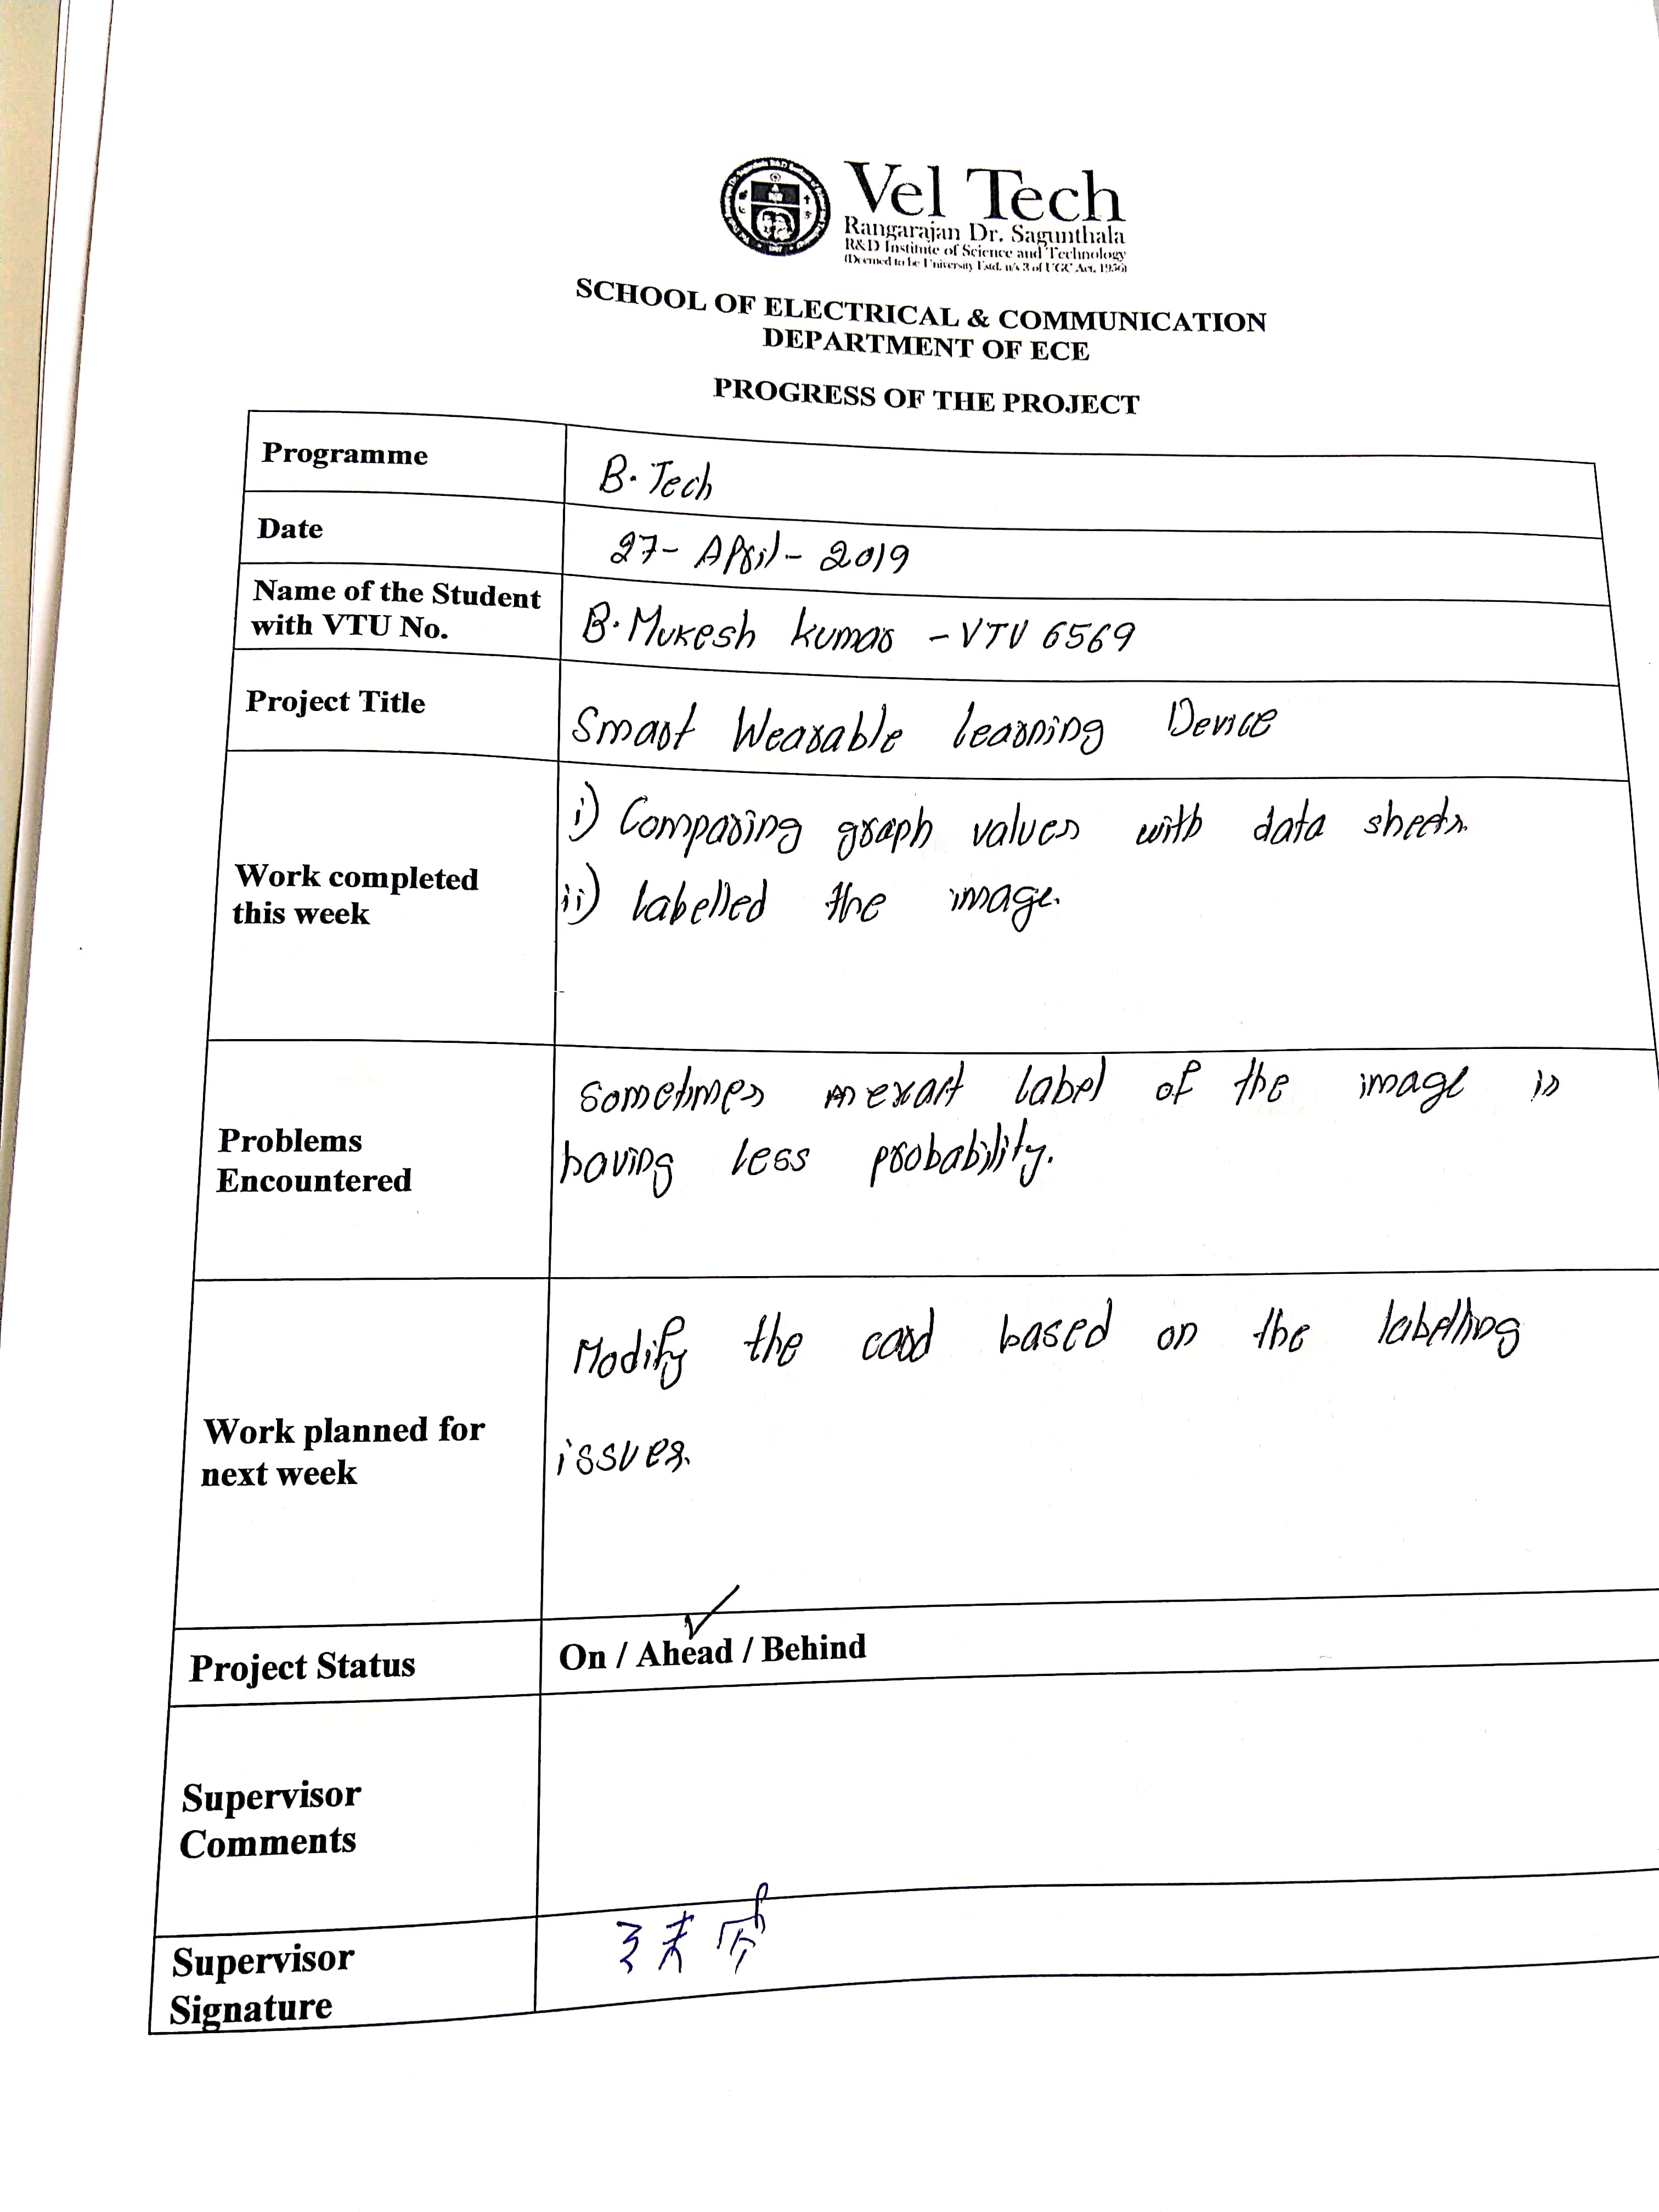 Vel Tech
Rangarajan Dr. Sagunthala
R&D Institute of Science and Technology
(Deemed to be University Estd. u/s 3 of UGC Act, 1956)
SCHOOL OF ELECTRICAL & COMMUNICATION
DEPARTMENT OF ECE
PROGRESS OF THE PROJECT
Programme
B.Tech
Date
27-April-2019
Name of the Student
with VTU No.
B.Mukesh kumar - VTU 6569
Project Title
Smart Wearable learning Device
Work completed
this week
i) Comparing graph values with data sheets.
ii) labelled the image.
Problems
Encountered
Sometimes exact label of the image is
having less probability.
Work planned for
next week
Modify the card based on the labelling
issues.
Project Status
On / Ahead / Behind
Supervisor
Comments
Supervisor
Signature